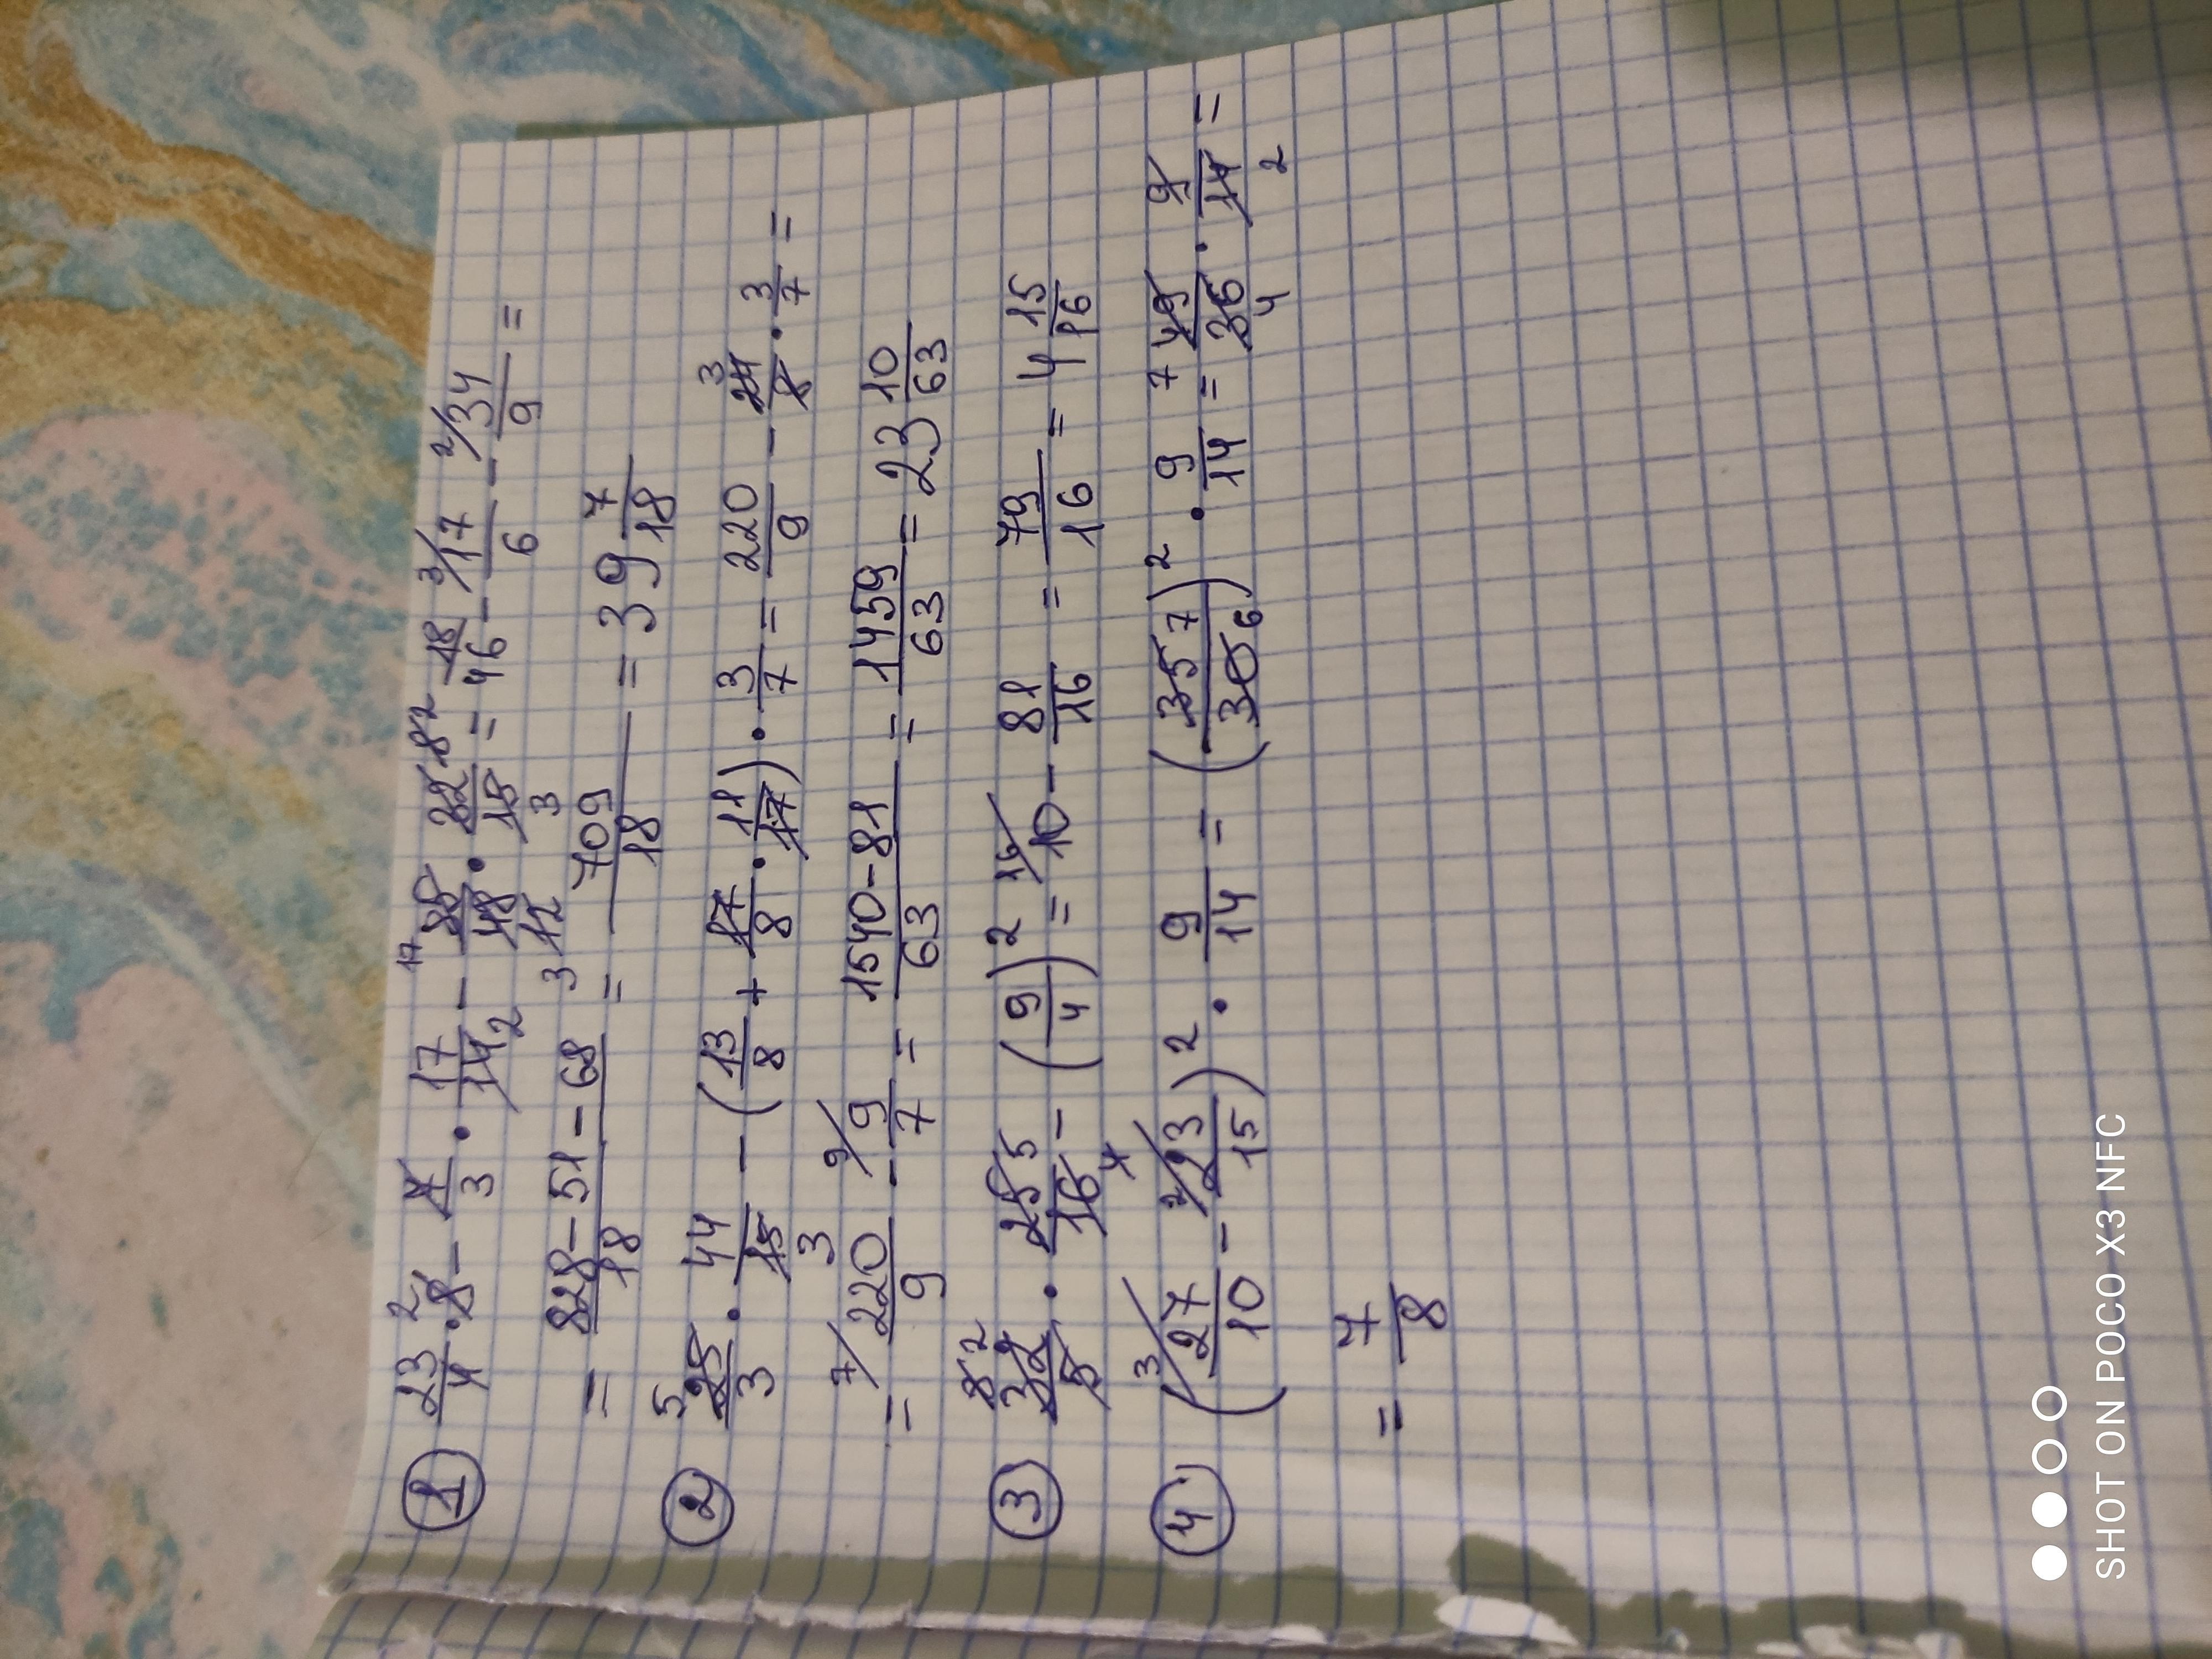 ① 23/4 · 8 2 - 4/3 · 17/14 2 - 17 85/48 12 3 · 32/15 3 8 2 = 46 18/ - 3/ 17/6 - 2/ 34/9 =
= 828-51-68/18 = 709/18 = 39 7/18
② 5 25/3 · 44/15 3 - (13/8 + 17/8 · 11/17) · 3/7 = 220/9 - 3 24/8 · 3/7 =
= 7/ 220/9 - 9/ 9/7 = 1540-81/63 = 1459/63 = 23 10/63
③ 8 2 32/5 · 25 5/16 4 - (9/4)² = 16/ 10 - 81/16 = 79/16 = 4 15/16
④ (3/ 27/10 - 2/ 23/15)² · 9/14 = (35 7/30 6)² · 9/14 = 7 49/36 4 · 9/14 2 =
= 7/8
SHOT ON POCO X3 NFC